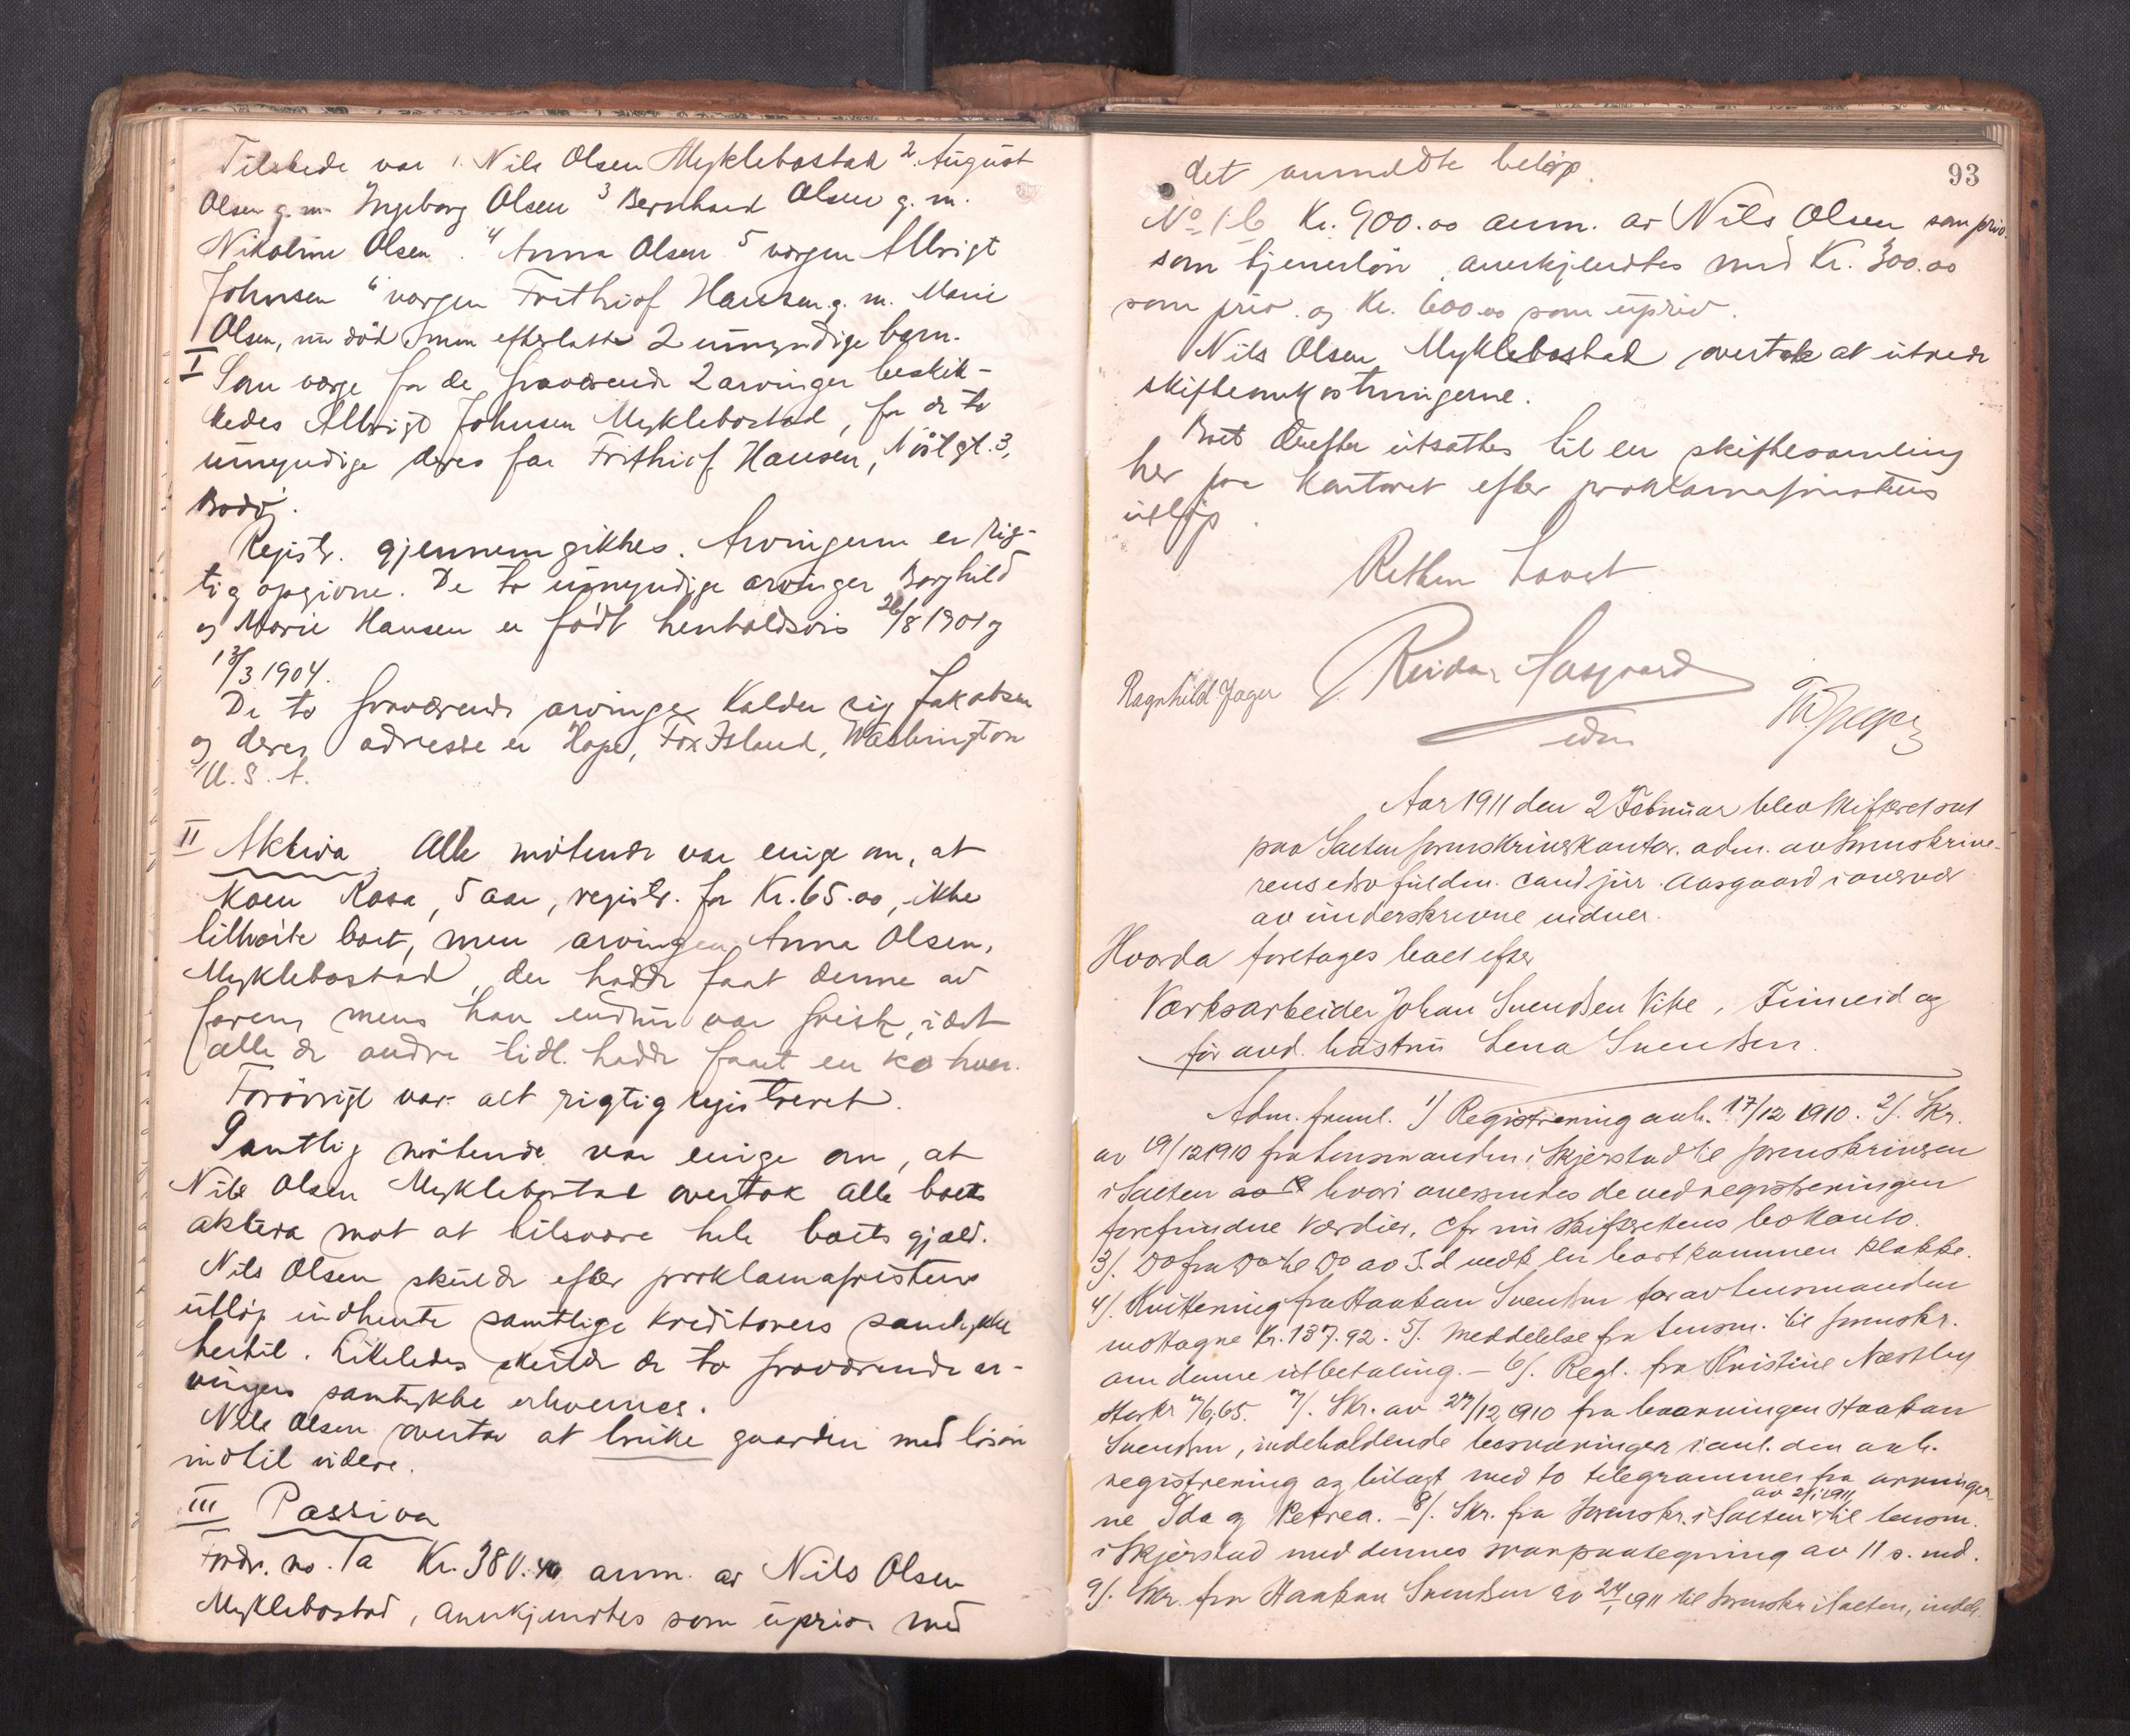 Tilstede var 1. Nils Olsen Myklebostad 2. August
Olsen g. m. Ingeborg Olsen 3 Bernhard Olsen g. m.
Nikoline Olsen. 4 Anna Olsen 5 vergen Albrigt
Johnsen 6 vergen Frithiof Hansen g. m. Marie
Olsen, nu död men efterlatte 2 umyndige barn.
I Som verge for de fraværende 2 arvinger beskik-
kedes Albrigt Johnsen Myklebostad, for de to
umyndige deres far Frithiof Hansen, Nöst gt. 3,
Bodö.
Registr. gjennemgikkes. Arvingerne er rig-
tig opgivne. De to umyndige arvinger Borghild
og Marie Hansen er födt henholdsvis 26/8 1901 og
13/3 1904.
De to fraværende arvinger kalder sig Jakobsen
og deres adresse er Hope, Fox Island, Washington
U. S. A.
II Aktiva. Alle mötende var enige om, at
koen Rosa, 5 aar, registr. for Kr. 65.00, ikke
tilhörte boet, men arvingen Anna Olsen,
Myklebostad, der hadde faat denne av
faren mens han endnu var frisk, idet
alle de andre tidl. hadde faaet en ko hver.
Forövrigt var alt rigtig registreret.
Samtlig mötende var enige om, at
Nils Olsen Myklebostad overtok alle boets
aktiva mot at tilsvare hele boets gjæld.
Nils Olsen skulde efter proklamafristens
utløp indhente samtlige kreditorers samtykke
hertil. Likeledes skulde de to fraværende ar-
vingers samtykke erhverves.
Nils Olsen overtar at bruke gaarden med lösöre
indtil videre.
III Passiva
Fordr. no. 1a Kr. 380.40 anm. av Nils Olsen
Myklebostad, anerkjendtes som uprior. med
93
det anmeldte beløp.
No 1b Kr. 900.00 anm. av Nils Olsen som prio.
som tjenerlön, anerkjendtes med Kr. 300.00
som prior. og Kr. 600.00 som uprior.
Nils Olsen Myklebostad overtok at utrede
skifteomkostningerne.
Boet derefter utsattes til en skiftesamling
her paa kontoret efter proklamafristens
utløp.
Retten hævet
Reidar Aasgaard
edm
Ragnhild Jager
Aar 1911 den 2 Februar blev skifteret sat
paa Salten sorenskriverkontor. adm. av sorenskrive-
rens edsv fuldm. cand jur. Aasgaard i overvær
av underskrevne vidner.
Hvorda foretages boet efter
Verksarbeider Johan Svendsen Vike, Finneid og
før avd. hustru Lena Svendsen.
Adm. freml. 1) Registrering avh. 17/12 1910. 2). Skr.
av 19/12 1910 fra lensmanden i Skjerstad til sorenskriveren
i Salten hvori oversendes de ved registreringen
forefundne værdier, cfr nu skifterettens bokonto.
3). Do fra Do til Do av S.d vedk en bortkommen klokke.
4). Kvittering fra Haakan Svendsen for av lensmanden
mottagne Kr. 137.92. 5). Meddelelse fra lensm. til sorenskr.
om denne utbetaling. – 6). Regl. fra Kristine Næstby
stor Kr 76,65. 7). Skr. av 27/12 1910 fra boarvingen Haakan
Svendsen, indeholdende besværinger i anl. den avh.
registrering og bilagt med to telegrammer fra arvinger
ne Ida og Petrea. – 8). Skr. fra sorenskr. i Salten av 2/1 1911 til lensm.
i Skjerstad med dennes svarpaategning av 11 s. md.
9). Skr. fra Haakan Svendsen av 24/1 1911 til sorenskr i Salten, indeh.